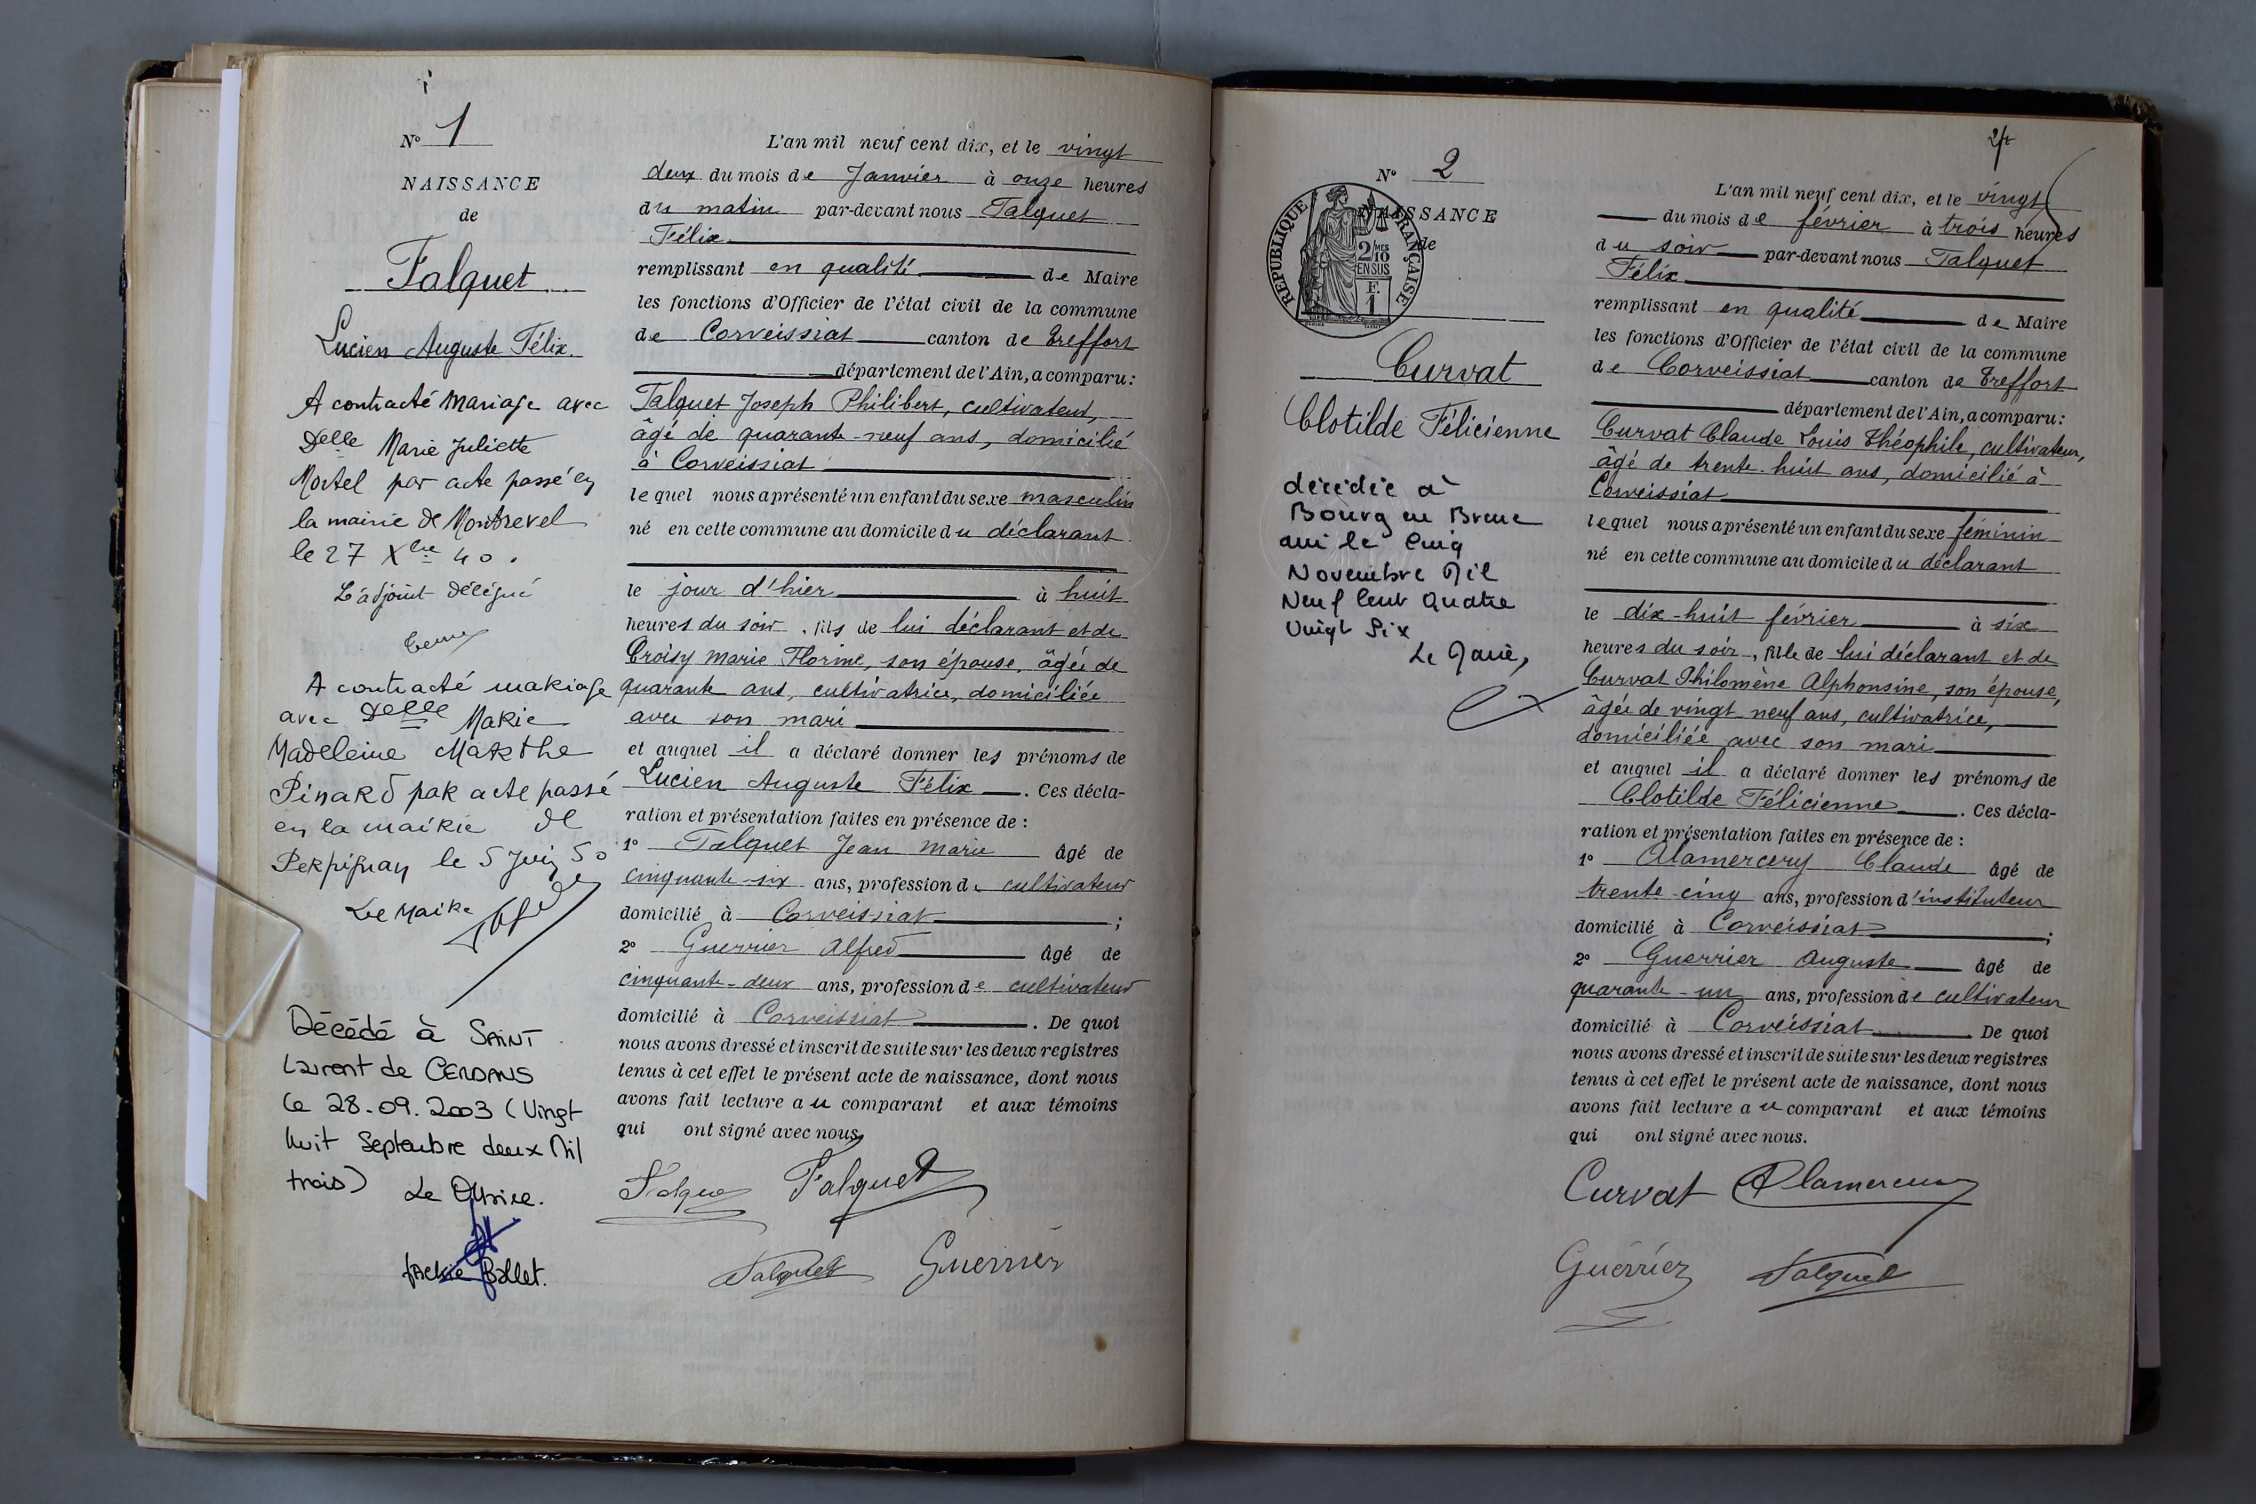 1
N° 1
NAISSANCE
de
Falquet
Lucien Auguste Félix.
A contracté Mariage avec
Delle Marie Juliette
Mortel par acte passé en
la mairie de Montrevel
le 27 Xbre 40.
L'adjoint délégué
A contracté mariage
avec Delle Marie
Madeleine Marthe
Pinard par acte passé
en la mairie de
Perpignan le 5 Juin 50
Le Maire
Décédé à SAINT
Laurent de CERDANS
le 28.09.2003 (Vingt
huit Septembre deux Mil
trois)
Le Maire.
Jackie Ballet.
L'an mil neuf cent dix, et le vingt
deux du mois de Janvier à onze heures
du matin par-devant nous Falquet
Félix
remplissant en qualité de Maire
les fonctions d'Officier de l'état civil de la commune
de Corveissiat canton de Treffort
département de l'Ain, a comparu:
Falquet Joseph Philibert, cultivateur,
âgé de quarante-neuf ans, domicilié
à Corveissiat
lequel nous a présenté un enfant du sexe masculin
né en cette commune au domicile du déclarant
le jour d'hier à huit
heures du soir, fils de lui déclarant et de
Croisy Marie Florine, son épouse, âgée de
quarante ans, cultivatrice, domiciliée
avec son mari
et auquel il a déclaré donner les prénoms de
Lucien Auguste Félix. Ces décla-
ration et présentation faites en présence de :
1° Falquet Jean Marie âgé de
cinquante-six ans, profession de cultivateur
domicilié à Corveissiat ;
2° Guerrier Alfred âgé de
cinquante-deux ans, profession de cultivateur
domicilié à Corveissiat. De quoi
nous avons dressé et inscrit de suite sur les deux registres
tenus à cet effet le présent acte de naissance, dont nous
avons fait lecture au comparant et aux témoins
qui ont signé avec nous
Falquet Falquet
Falquet Guerrier
N° 2
NAISSANCE
de
RÉPUBLIQUE FRANÇAISE
2/MES
10
EN SUS
F.
1
Curvat
Clotilde Félicienne
décédée à
Bourg en Bresse
Ain le Cinq
Novembre Mil
Neuf Cent Quatre
Vingt Six
Le Maire,
L'an mil neuf cent dix, et le vingt
du mois de février à trois heures
du soir par-devant nous Falquet
Félix
remplissant en qualité de Maire
les fonctions d'Officier de l'état civil de la commune
de Corveissiat canton de Treffort
département de l'Ain, a comparu:
Curvat Claude Louis Théophile, cultivateur,
âgé de trente-huit ans, domicilié à
Corveissiat
lequel nous a présenté un enfant du sexe féminin
né en cette commune au domicile du déclarant
le dix-huit février à six
heures du soir, fille de lui déclarant et de
Curvat Philomène Alphonsine, son épouse,
âgée de vingt-neuf ans, cultivatrice,
domiciliée avec son mari
et auquel il a déclaré donner les prénoms de
Clotilde Félicienne. Ces décla-
ration et présentation faites en présence de :
1° Alamercery Claude âgé de
trente-cinq ans, profession d'instituteur
domicilié à Corveissiat ;
2° Guerrier Auguste âgé de
quarante-un ans, profession de cultivateur
domicilié à Corveissiat De quoi
nous avons dressé et inscrit de suite sur les deux registres
tenus à cet effet le présent acte de naissance, dont nous
avons fait lecture au comparant et aux témoins
qui ont signé avec nous.
Curvat Alamercery
Guérrier Falquet